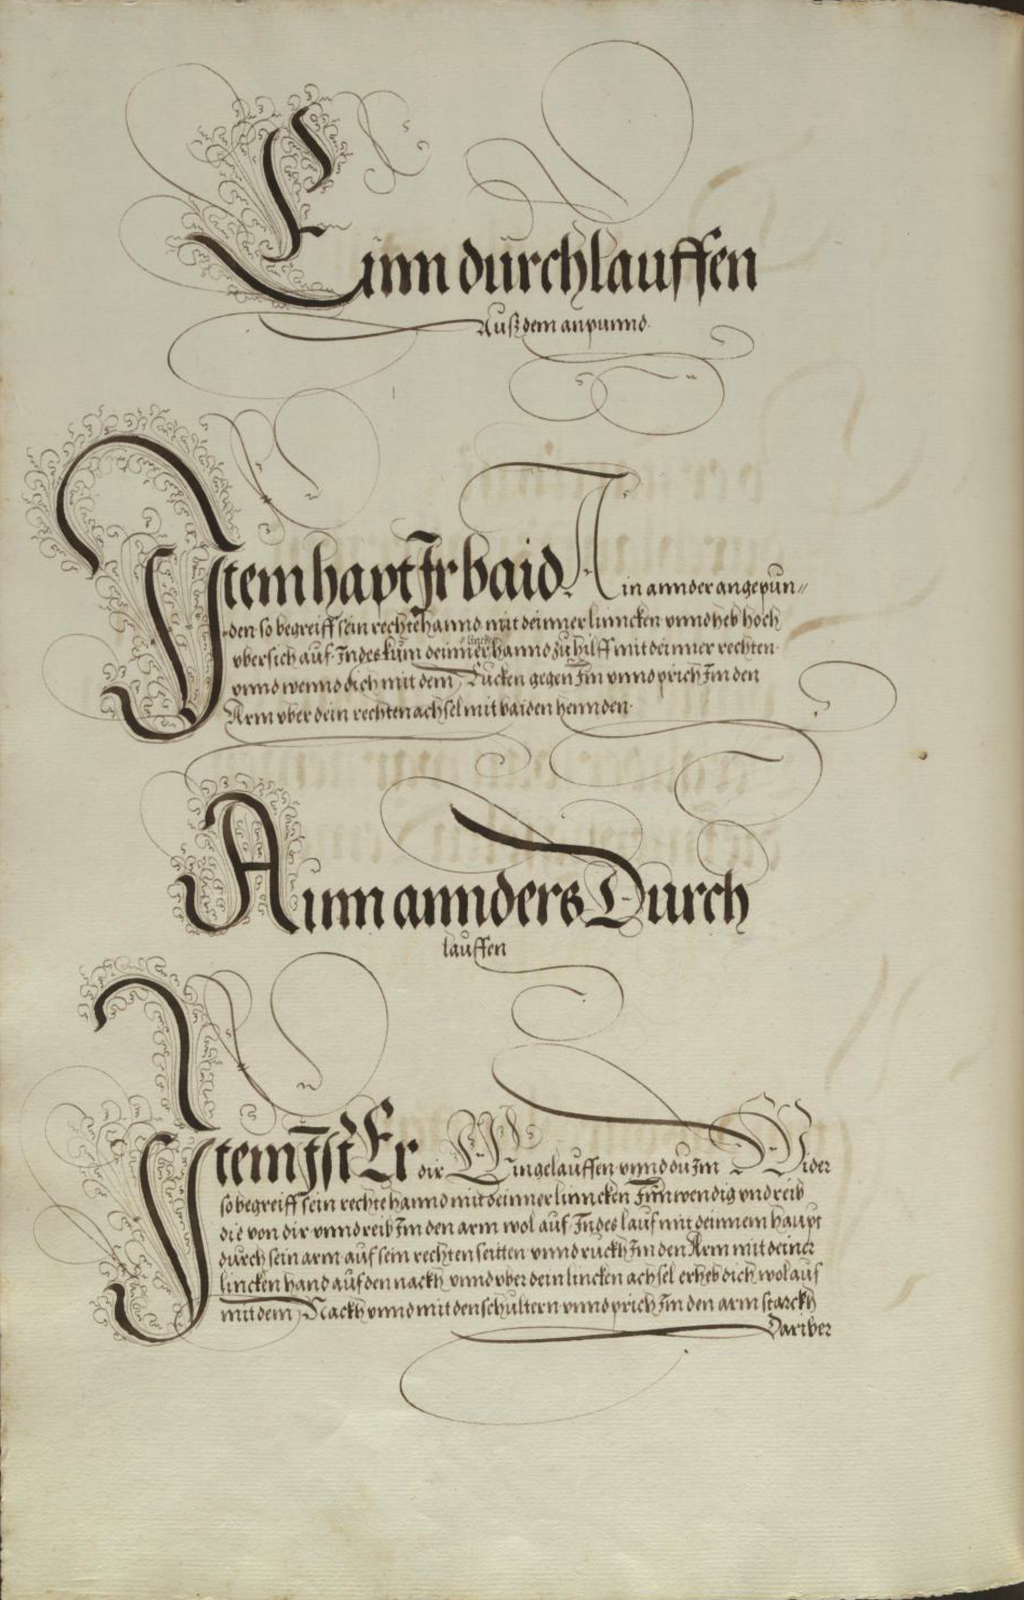 Einn durchlauffen
Auß dem anpunnd.
Item hapt Ir baid Ain annder angepun//
den so begreiff sein rechte hannd mit deinner linncken vnnd heb hoch
vbersich auf. Indes kum deinner linck hannd zu hilff mit deinner rechten.
vnnd wennd dich mit dem Rucken gegen Im vnnd prich Im den
Arm vber dein rechten achsel mit baiden hennden.
Ainn annders Durch
lauffen
Item Ist Er dir Eingelauffen vnnd du Im Wider
so begreiff sein rechte hannd mit deinner linncken Innwendig vnd reib
die von dir vnnd reib Im den arm wol auf. Indes lauf mit deinnem haupt
durch sein arm auf sein rechten seitten vnnd ruckh Im den Arm mit deiner
lincken hand auf den nackh vnnd vber dein lincken achsel erheb dich wol auf
mit dem Nackh vnnd mit den schultern vnnd prich Im den arm starckh
Dariber